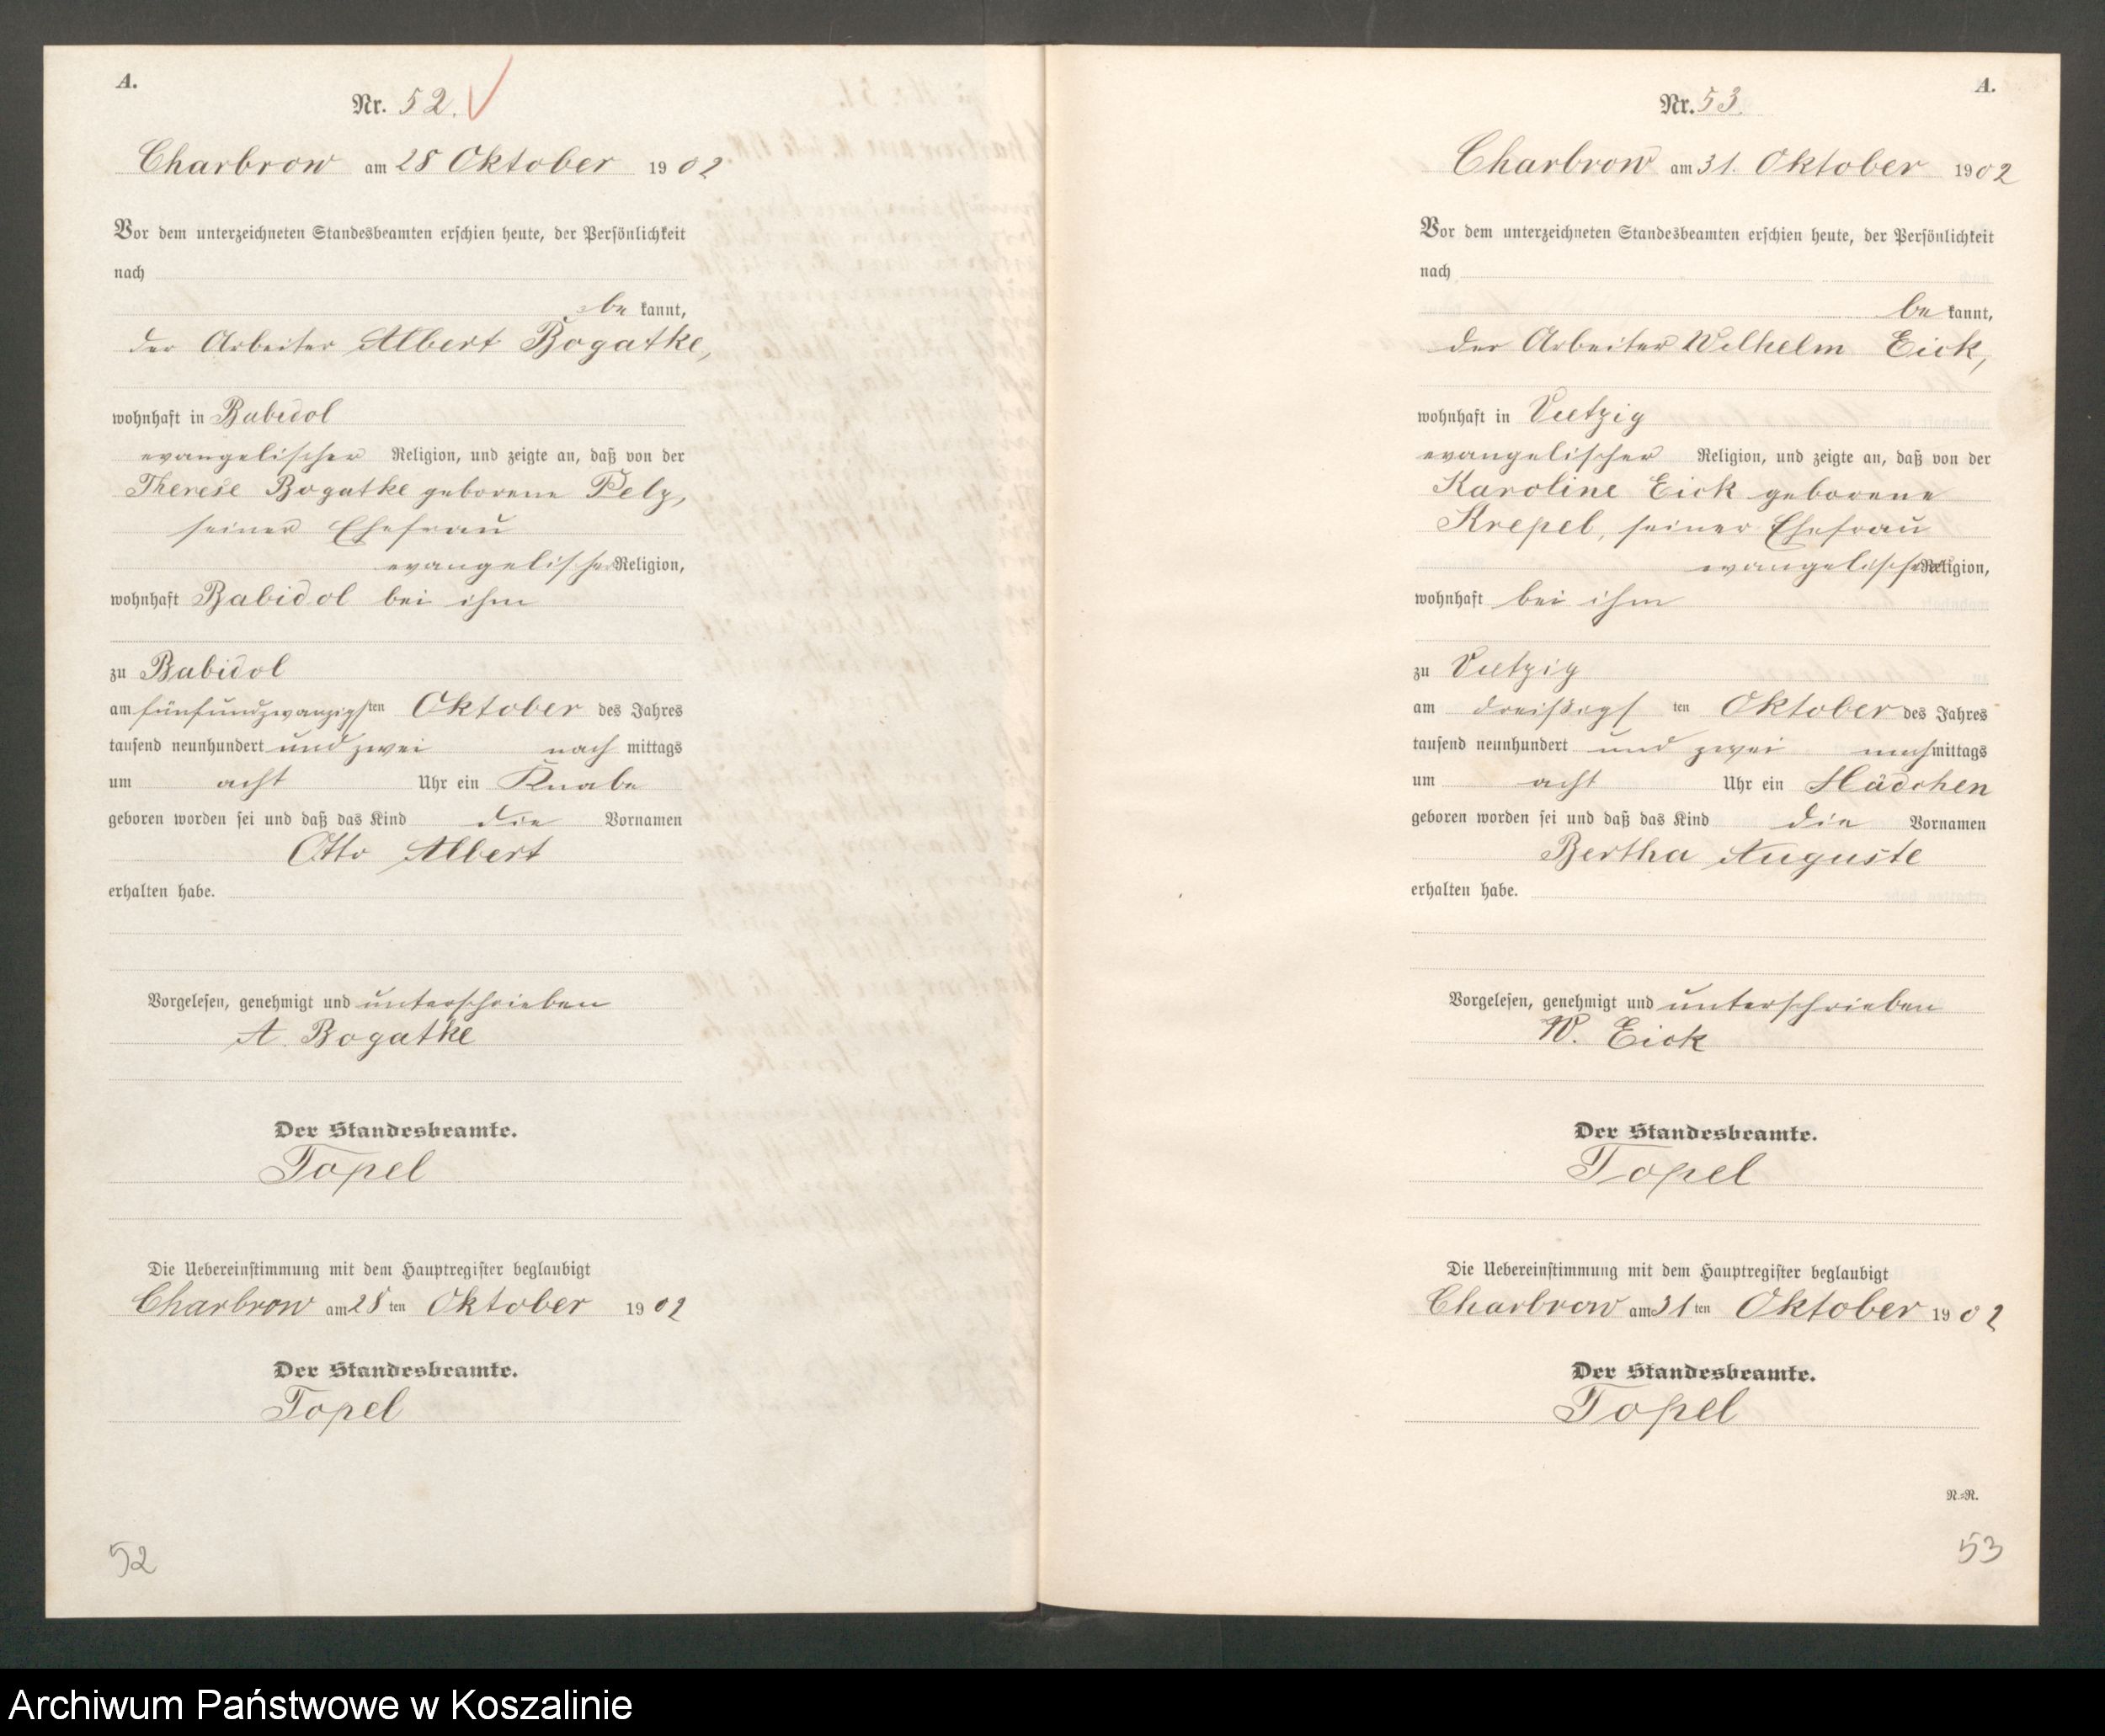 A.
Nr. 52.
Charbrow am 28 Oktober 1902
Vor dem unterzeichneten Standesbeamten erschien heute, der Persönlichkeit
nach
be kannt,
der Arbeiter Albert Bogatke,
wohnhaft in Babidol
evangelischer Religion, und zeigte an, daß von der
Therese Bogatke geborene Pelz,
seiner Ehefrau
evangelischer Religion,
wohnhaft Babidol bei ihm
zu Babidol
am fünfundzwanzigsten Oktober des Jahres
tausend neunhundert und zwei nach mittags
um acht Uhr ein Knabe
geboren worden sei und daß das Kind die Vornamen
Otto Albert
erhalten habe.
Vorgelesen, genehmigt und unterschrieben
A. Bogatke
Der Standesbeamte.
Topel
Die Uebereinstimmung mit dem Hauptregister beglaubigt
Charbrow am 28 ten Oktober 1902
Der Standesbeamte.
Topel
52
A.
Nr. 53.
Charbrow am 31. Oktober 1902
Vor dem unterzeichneten Standesbeamten erschien heute, der Persönlichkeit
nach
be kannt,
der Arbeiter Wilhelm Eick,
wohnhaft in Vietzig
evangelischer Religion, und zeigte an, daß von der
Karoline Eick geborene
Krepel, seiner Ehefrau
evangelischer Religion,
wohnhaft bei ihm
zu Vietzig
am dreißigst ten Oktober des Jahres
tausend neunhundert und zwei nach mittags
um acht Uhr ein Mädchen
geboren worden sei und daß das Kind die Vornamen
Bertha Auguste
erhalten habe.
Vorgelesen, genehmigt und unterschrieben
W. Eick
Der Standesbeamte.
Topel
Die Uebereinstimmung mit dem Hauptregister beglaubigt
Charbrow am 31 ten Oktober 1902
Der Standesbeamte.
Topel
N.=R.
53
Archiwum Państwowe w Koszalinie